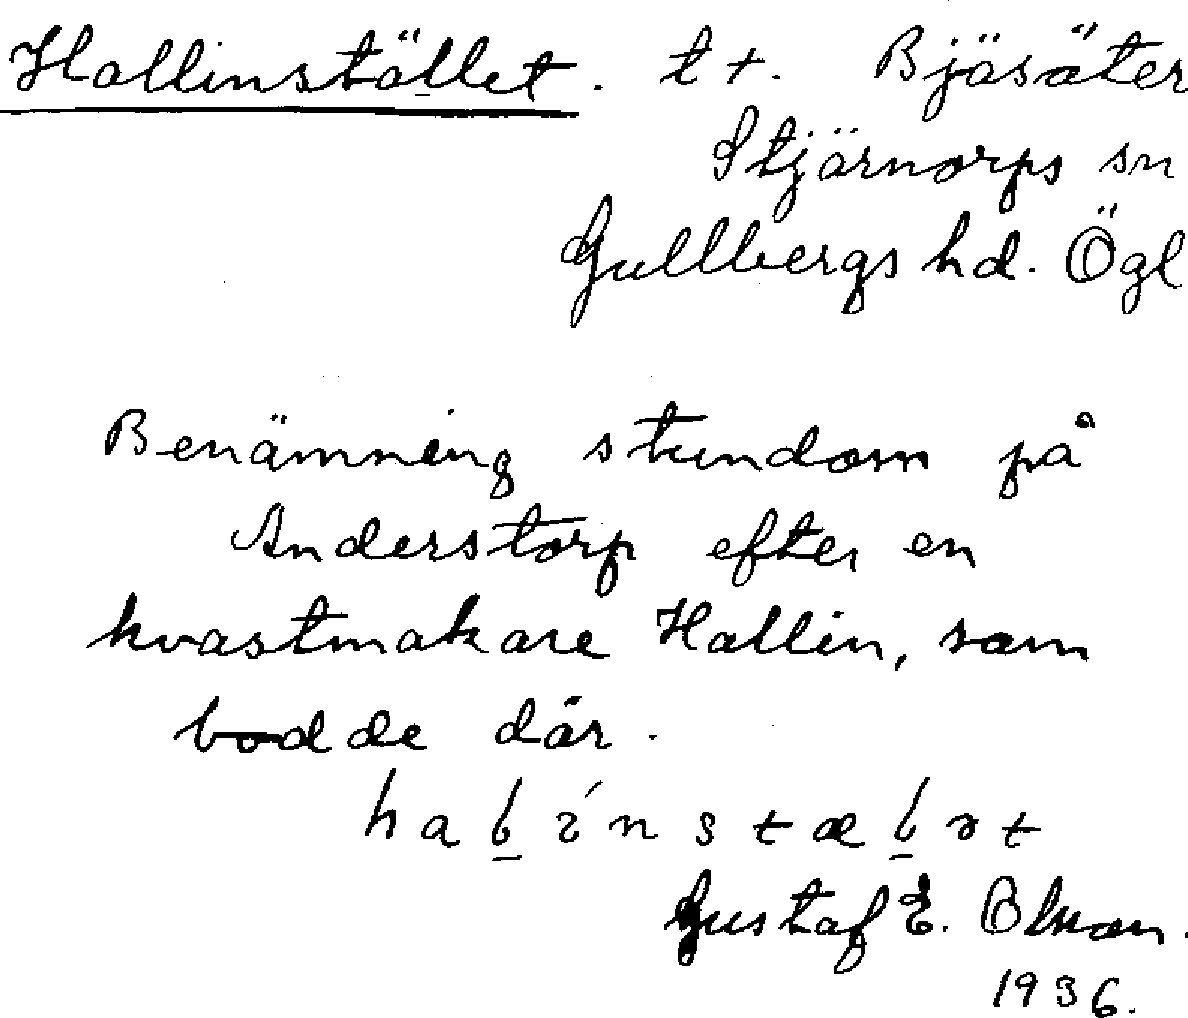 Hallinstället. t+. Bjäsäter
Stjärnorps sn
Gullbergs hd. Ögl
Benämning stundom på
Anderstorp efter en
kvastmakare Hallin, som
bodde där.
Gustaf E.
1936.